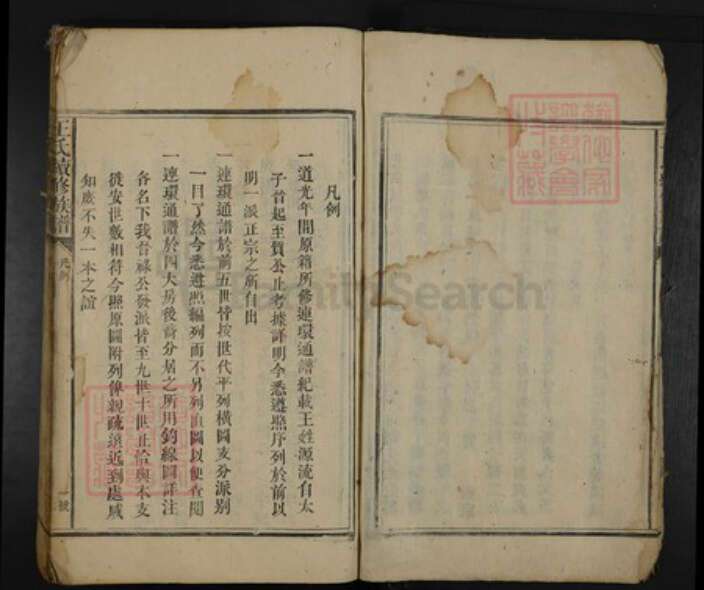 凡例
一道光年間原籍所修連環通譜紀載王姓源流自太
子晉起至質公止考據詳明今悉遵照序列於前以
明一派正宗之所自出
一連環通譜於前五世皆按世代平列橫圖支分派別
一目了然今悉遵照編列而不另列直圖以便查閱
一連環通譜於四大房後裔分居之所用鈎線圖詳注
各名下我台祿公發派皆至九世十世止恰與本支
徙安世數相符今照原圖附列俾親疏遠近到處咸
知庶不失一本之誼
王氏續修族譜
凡例
一號
FamilySearch